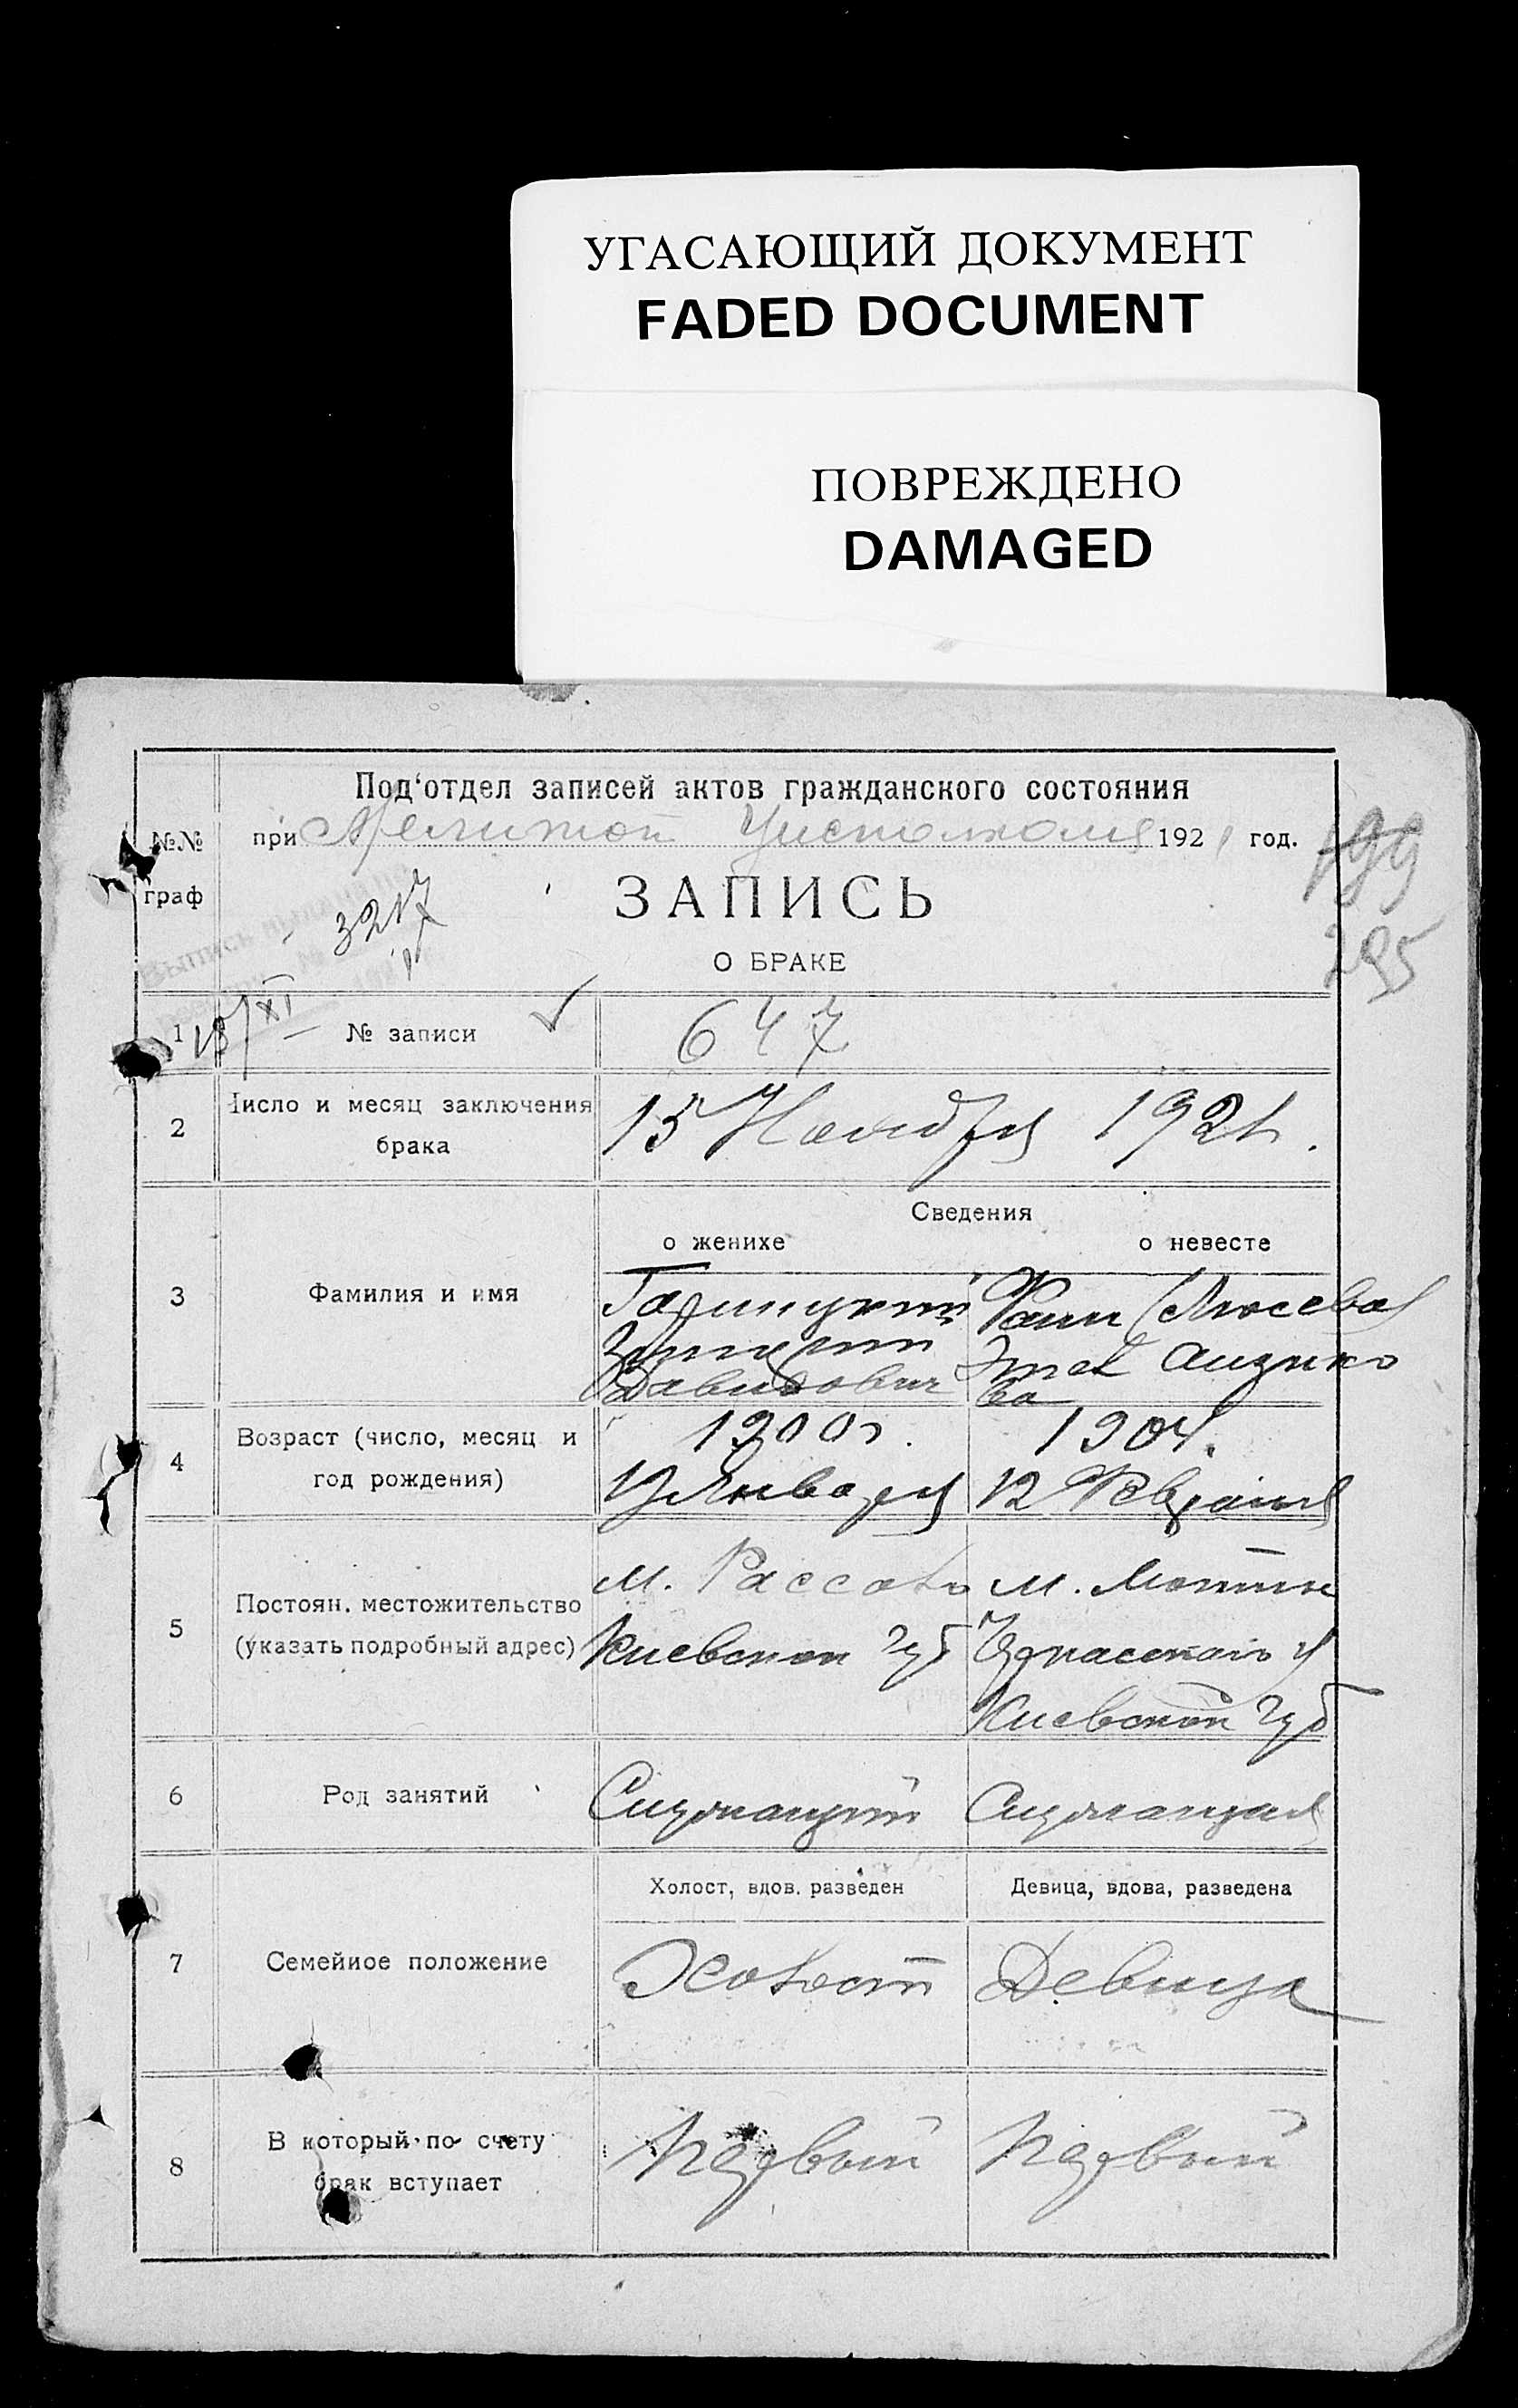 УГАСАЮЩИЙ ДОКУМЕНТ
FADED DOCUMENT
ПОВРЕЖДЕНО
DAMAGED
Под‘отдел записей актов гражданского состояния
№№ граф
при 192 год.
199
3217
ЗАПИСЬ
295
О БРАКЕ
1 15/XI № записи 647
2 Число и месяц заключения
брака
15 Ноября 1921.
Сведения
о женихе о невесте
3 Фамилия и имя
Давидович
ва
4 Возраст (число, месяц и
год рождения)
1900г. 1904.
Января 12 Февраля
5 Постоян. местожительство
(указать подробный адрес)
м. м.
Киевской губ Черкасского у
Киевской губ
6 Род занятий Служащий Служащая
Холост, вдов. разведен Девица, вдова, разведена
7 Семейное положение Холост Девица
8 В который по счету
брак вступает
Первый Первый